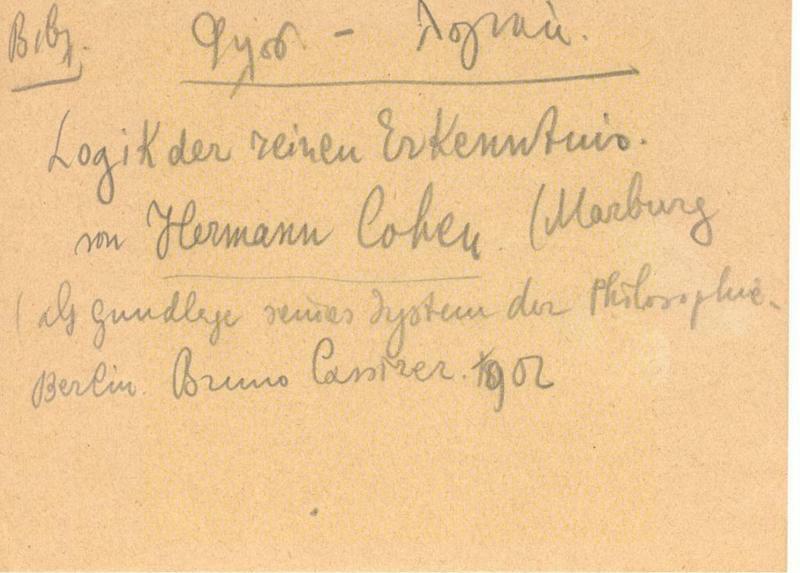 Logik der reinen Erkenntnis.
von Hermann Cohen. (Marburg
(als Grundlage seines System der Philosophie.
Berlin. Bruno Cassirer. 1902